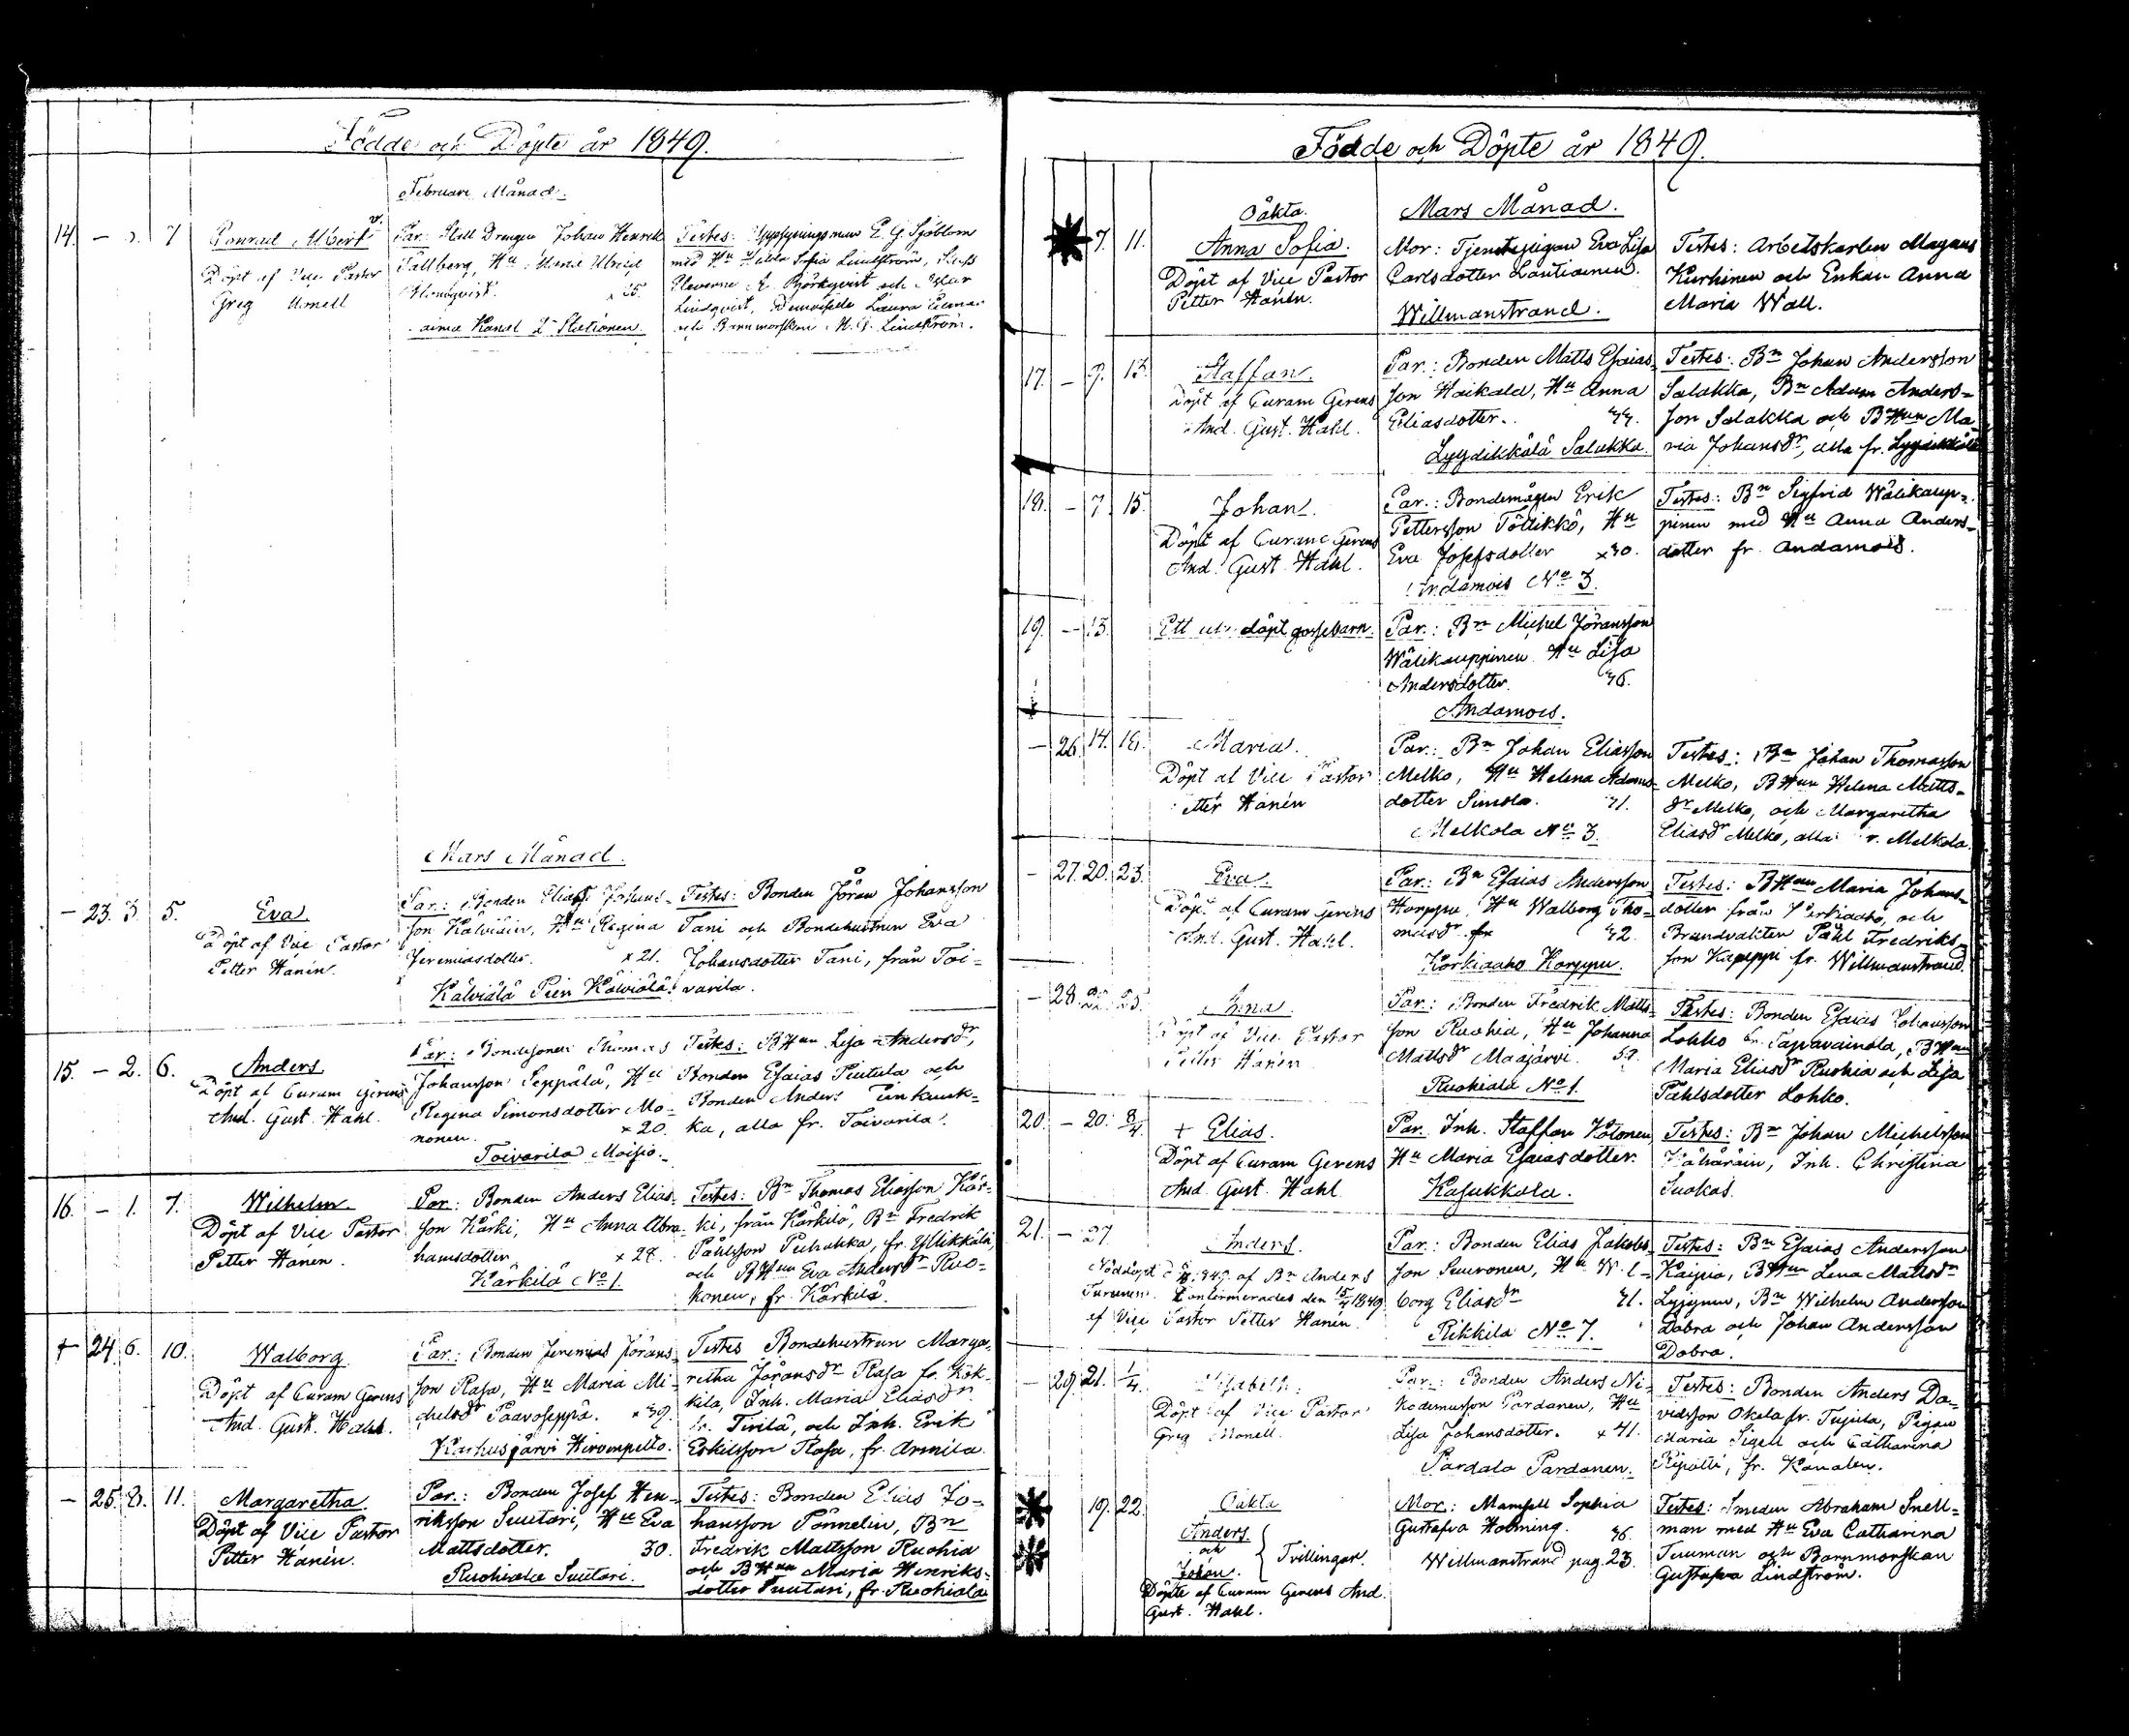 Födde och Döpte år 1849.
Februari Månad.
14. — 7
Conrad Albert
Döpt af Vice Pastor
Greg
Par: Stall Drengen Johan Henrik
Fällberg, Hu Maria Ulrica
25.
Kanal 2 Stationen.
Testes: Uppsyningsman E. G. Sjöblom
med Hu Sofia Lindström,
Eleverne Björkqvist och Oskar
Lindqvist, Demoiselle Laura
och Barnmorskan Lindström.
Mars Månad.
— 23. 3. 5.
Eva.
Döpt af Vice Pastor
Petter Hanén.
Par.: Bonden Elias Johans-
son Kälviäin, Hu Regina
Jeremiasdotter. x 21.
Kälviälä Pien Kälviälä.
Testes: Bonden Jöran Johansson
Tani och Bondehustrun Eva
Johansdotter Tani, från Toi-
varila.
15. — 2. 6.
Anders.
Döpt af Curam Gerens
And. Gust. Hahl.
Par.: Bondesonen Thomas
Johansson Seppälä, Hu
Regina Simonsdotter Mo-
nonen. x 20.
Toivarila Moisio.
Testes: BHun Lisa Andersdr,
Bonden Esaias Piutula och
Bonden Anders Tiinkauk-
ka, alla fr. Toivarila.
16. — 1. 7.
Wilhelm.
Döpt af Vice Pastor
Petter Hanén.
Par: Bonden Anders Elias-
son Kärki, Hu Anna Abra-
hamsdotter. x 28.
Kärkilä No 1.
Testes: Bn Thomas Eliasson Kär-
ki, från Kärkilä, Bn Fredrik
Påhlsson Puhakka, fr. Yllikkälä,
och BHun Eva Andersdr Ruo-
konen, fr. Kärkilä.
+ 24. 6. 10.
Walborg
Döpt af Curam Gerens
And. Gust. Hahl.
Par.: Bonden Jeremias Jörans-
son Rasa, Hu Maria Mi-
chelsdr Paavoseppä. x 39.
Karhusjärvi Hirvenpelto.
Testes Bondehustrun Marga-
retha Jöransdr Rasa fr. Kök-
kilä, Inh. Maria Eliasdr
fr. Tirilä, och Inh. Erik
Eskilsson Rasa, fr. Armila.
— 25. 8. 11.
Margaretha.
Döpt af Vice Pastor
Petter Hanén.
Par.: Bonden Josef Hen-
riksson Suutari, Hu Eva
Mattsdotter. 30.
Ruohiala Suutari.
Testes: Bonden Elias Jo-
hansson Pönnelin, Bn
Fredrik Mattsson Ruohia
och BHun Maria Henriks-
dotter Suutari, fr. Ruohiala
Födde och Döpte år 1849.
Mars Månad.
7. 11.
Oäkta.
Anna Sofia.
Döpt af Vice Pastor
Petter Hanén.
Mor: Tjenstepigan Eva Lisa
Carlsdotter Lantiainen.
Willmanstrand.
Testes: Arbetskarlen Magnus
Kurhinen och Enkan Anna
Maria Wall.
17. — 9. 13.
Staffan.
Döpt af Curam Gerens
And. Gust. Hahl.
Par.: Bonden Matts Esaias-
son Haikala, Hu Anna
Eliasdotter.
Lyydikkälä Salakka.
Testes: Bn Johan Andersson
Salakka, Bn Adam Anders-
son Salakka och BHun Ma-
ria Johansdr, alla fr. Lyydikkälä
18. — 7. 15.
Johan.
Döpt af Curam Gerens
And. Gust. Hahl.
Par.: Bondemågen Erik
Pettersson Töllikkö, Hu
Eva Josefsdotter x 30.
Andamois No 3.
Testes: Bn Sigfrid Wälikaup-
pinen med Hu Anna Anders-
dotter fr. Andamois.
19. — 13.
Ett döpt gossebarn.
Par.: Bn Michel Jöransson
Wälikauppinen Hu Lisa
Andersdotter. 36.
Andamois.
— 26. 14. 18.
Maria.
Döpt af Vice Pastor
Petter Hanén
Par.: Bn Johan Eliasson
Melko, Hu Helena Adams-
dotter Simola.
Melkola No 3.
Testes: Bn Johan Thomasson
Melko, BHun Helena Matts-
dr Melko, och Margaretha
Eliasdr Melko, alla fr. Melkola.
— 27. 20. 23.
Eva.
Döpt af Curam Gerens
And. Gust. Hahl.
Par.: Bn Esaias Andersson
Korppu, Hu Walborg Tho-
masdr 32.
Korkiaaho Korppu.
Testes: BHun Maria Johans-
dotter från Korkiaaho, och
Brandvakten Påhl Fredriks-
son Kapeppi fr. Willmanstrand.
— 28. 22. 25.
Anna.
Döpt af Vice Pastor
Petter Hanén
Par.: Bonden Fredrik Matts-
son Ruohia, Hu Johanna
Mattsdr Maajärvi.
Ruohiala No 1.
Testes: Bonden Esaias Johansson
Lohko fr. Tapavainola, BHun
Maria Eliasdr Ruohia och Lisa
Påhlsdotter Lohko.
20. — 20. 8/4.
+ Elias.
Döpt af Curam Gerens
And. Gust. Hahl
Par. Inh. Staffan Kotonen
Hu Maria Esaiasdotter.
Kasukkala.
Testes: Bn Johan Michelsson
Inh. Christina
Suokas.
21. — 27.
Anders.
Nöddöpt 1849 af Bn Anders
Turunen. Confirmerades den 15/4 1849
af Vice Pastor Petter Hanén.
Par.: Bonden Elias Jakobs-
son Suuronen, Hu Wal-
borg Eliasdr
Rikkilä No 7.
Testes: Bn Esaias Andersson
Kaipia, BHun Lena Mattsdr
Lyyynen, Bn Wilhelm Andersson
Dobra och Johan Andersson
Dobra.
— 29. 21. 1/4.
Elisabeth.
Döpt af Vice Pastor
Greg
Par.: Bonden Anders Ni-
kodemusson Pardanen, Hu
Lisa Johansdotter. x 41.
Pardala Pardanen.
Testes: Bonden Anders Da-
vidsson Okela fr. Tujula, Pigan
Maria Sigell och Catharina
Ripatti, fr. Kanalen.
19. 22.
Oäkta
Anders
och
Johan.
Tvillingar.
Döpte af Curam Gerens And.
Gust. Hahl.
Mor: Mamsell Sophia
Gustafva Holming. 36.
Willmanstrand pag. 23.
Testes: Smeden Abraham Snell-
man med Hu Eva Catharina
Tuuman och Barnmorskan
Gustafva Lindström.